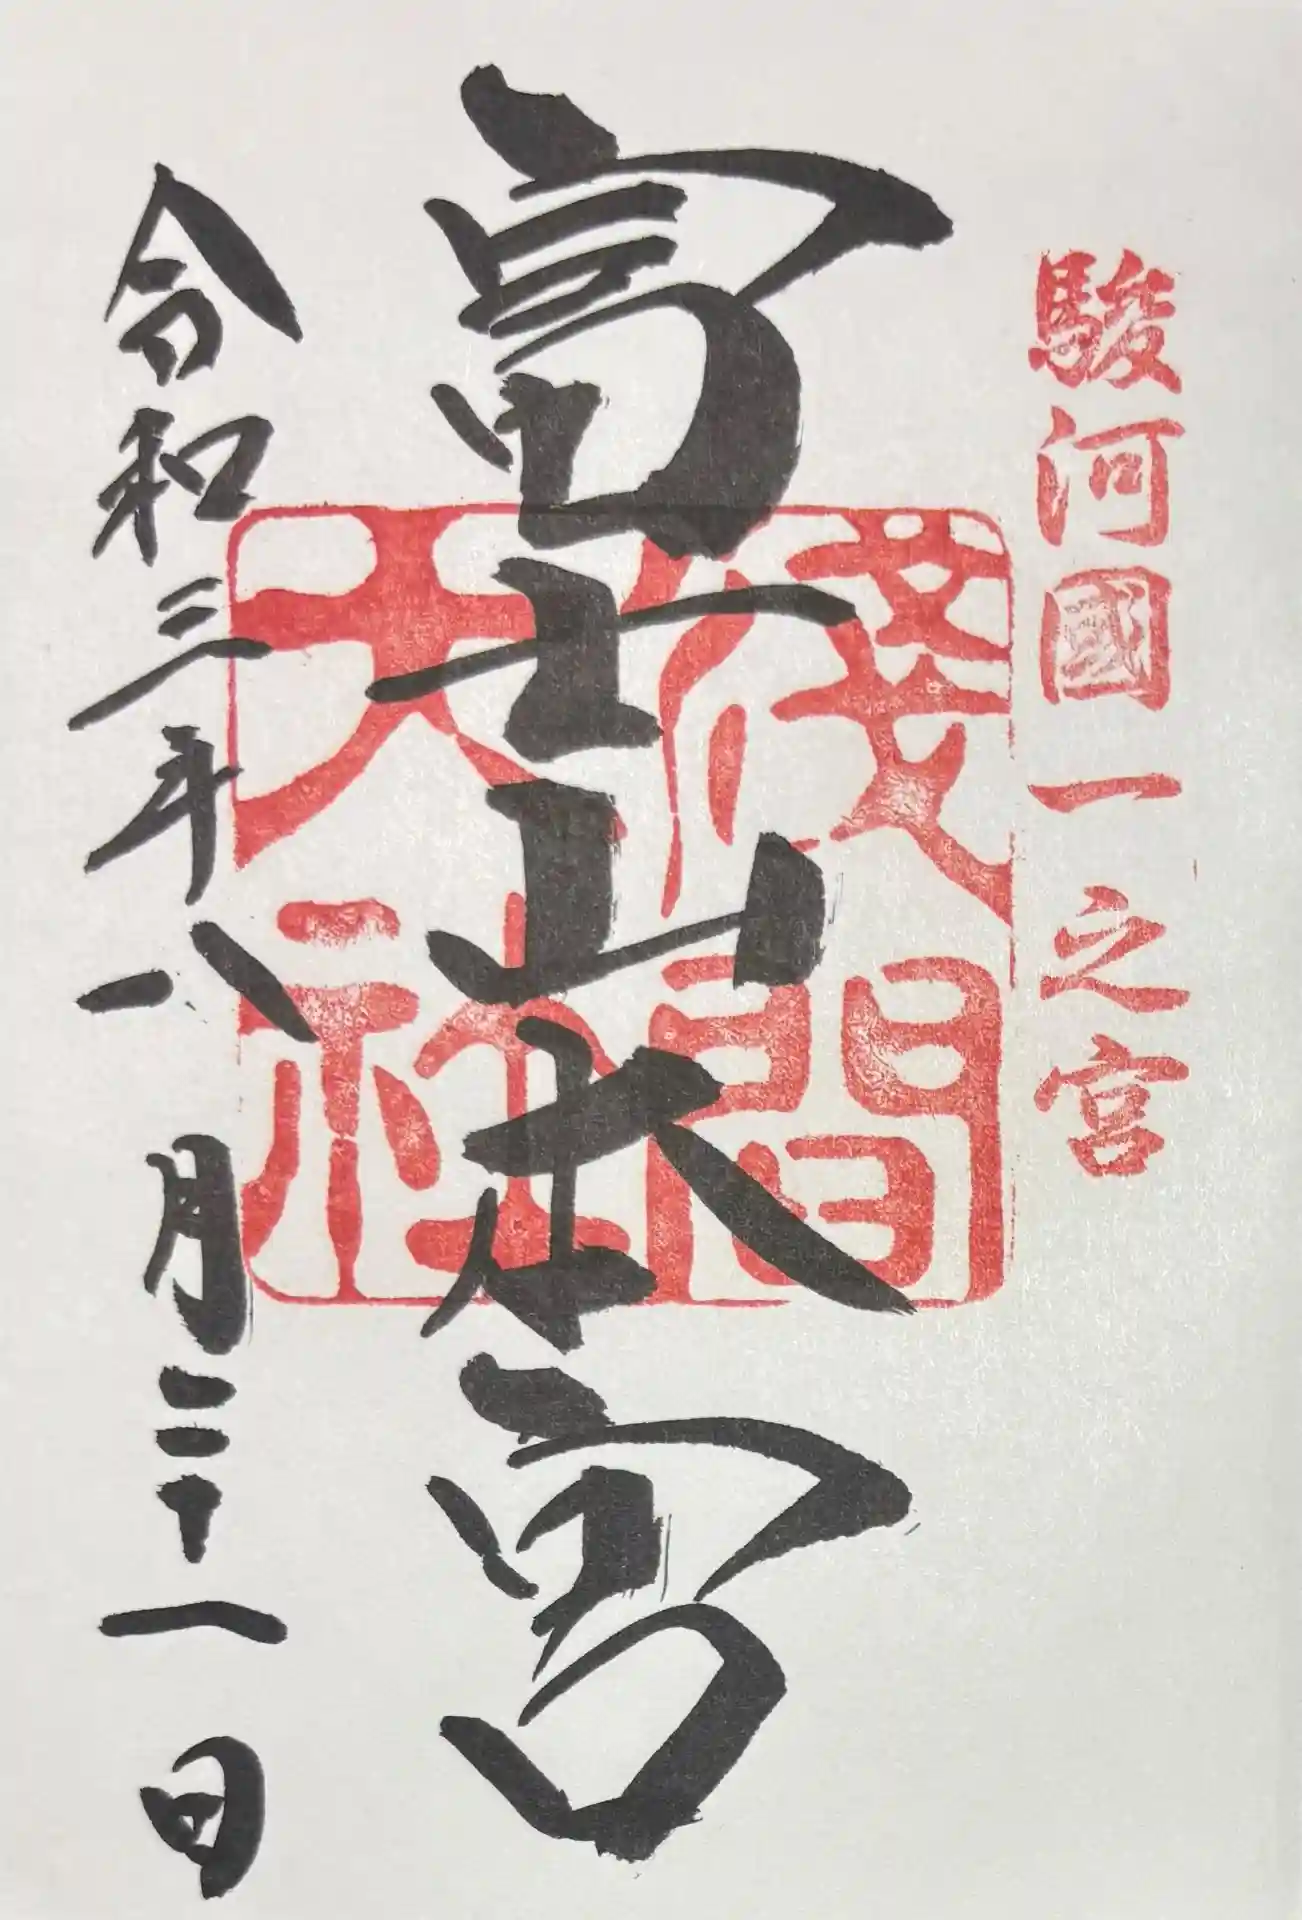 駿河國一之宮
富士山本宮
淺間大社
令和三年八月二十一日